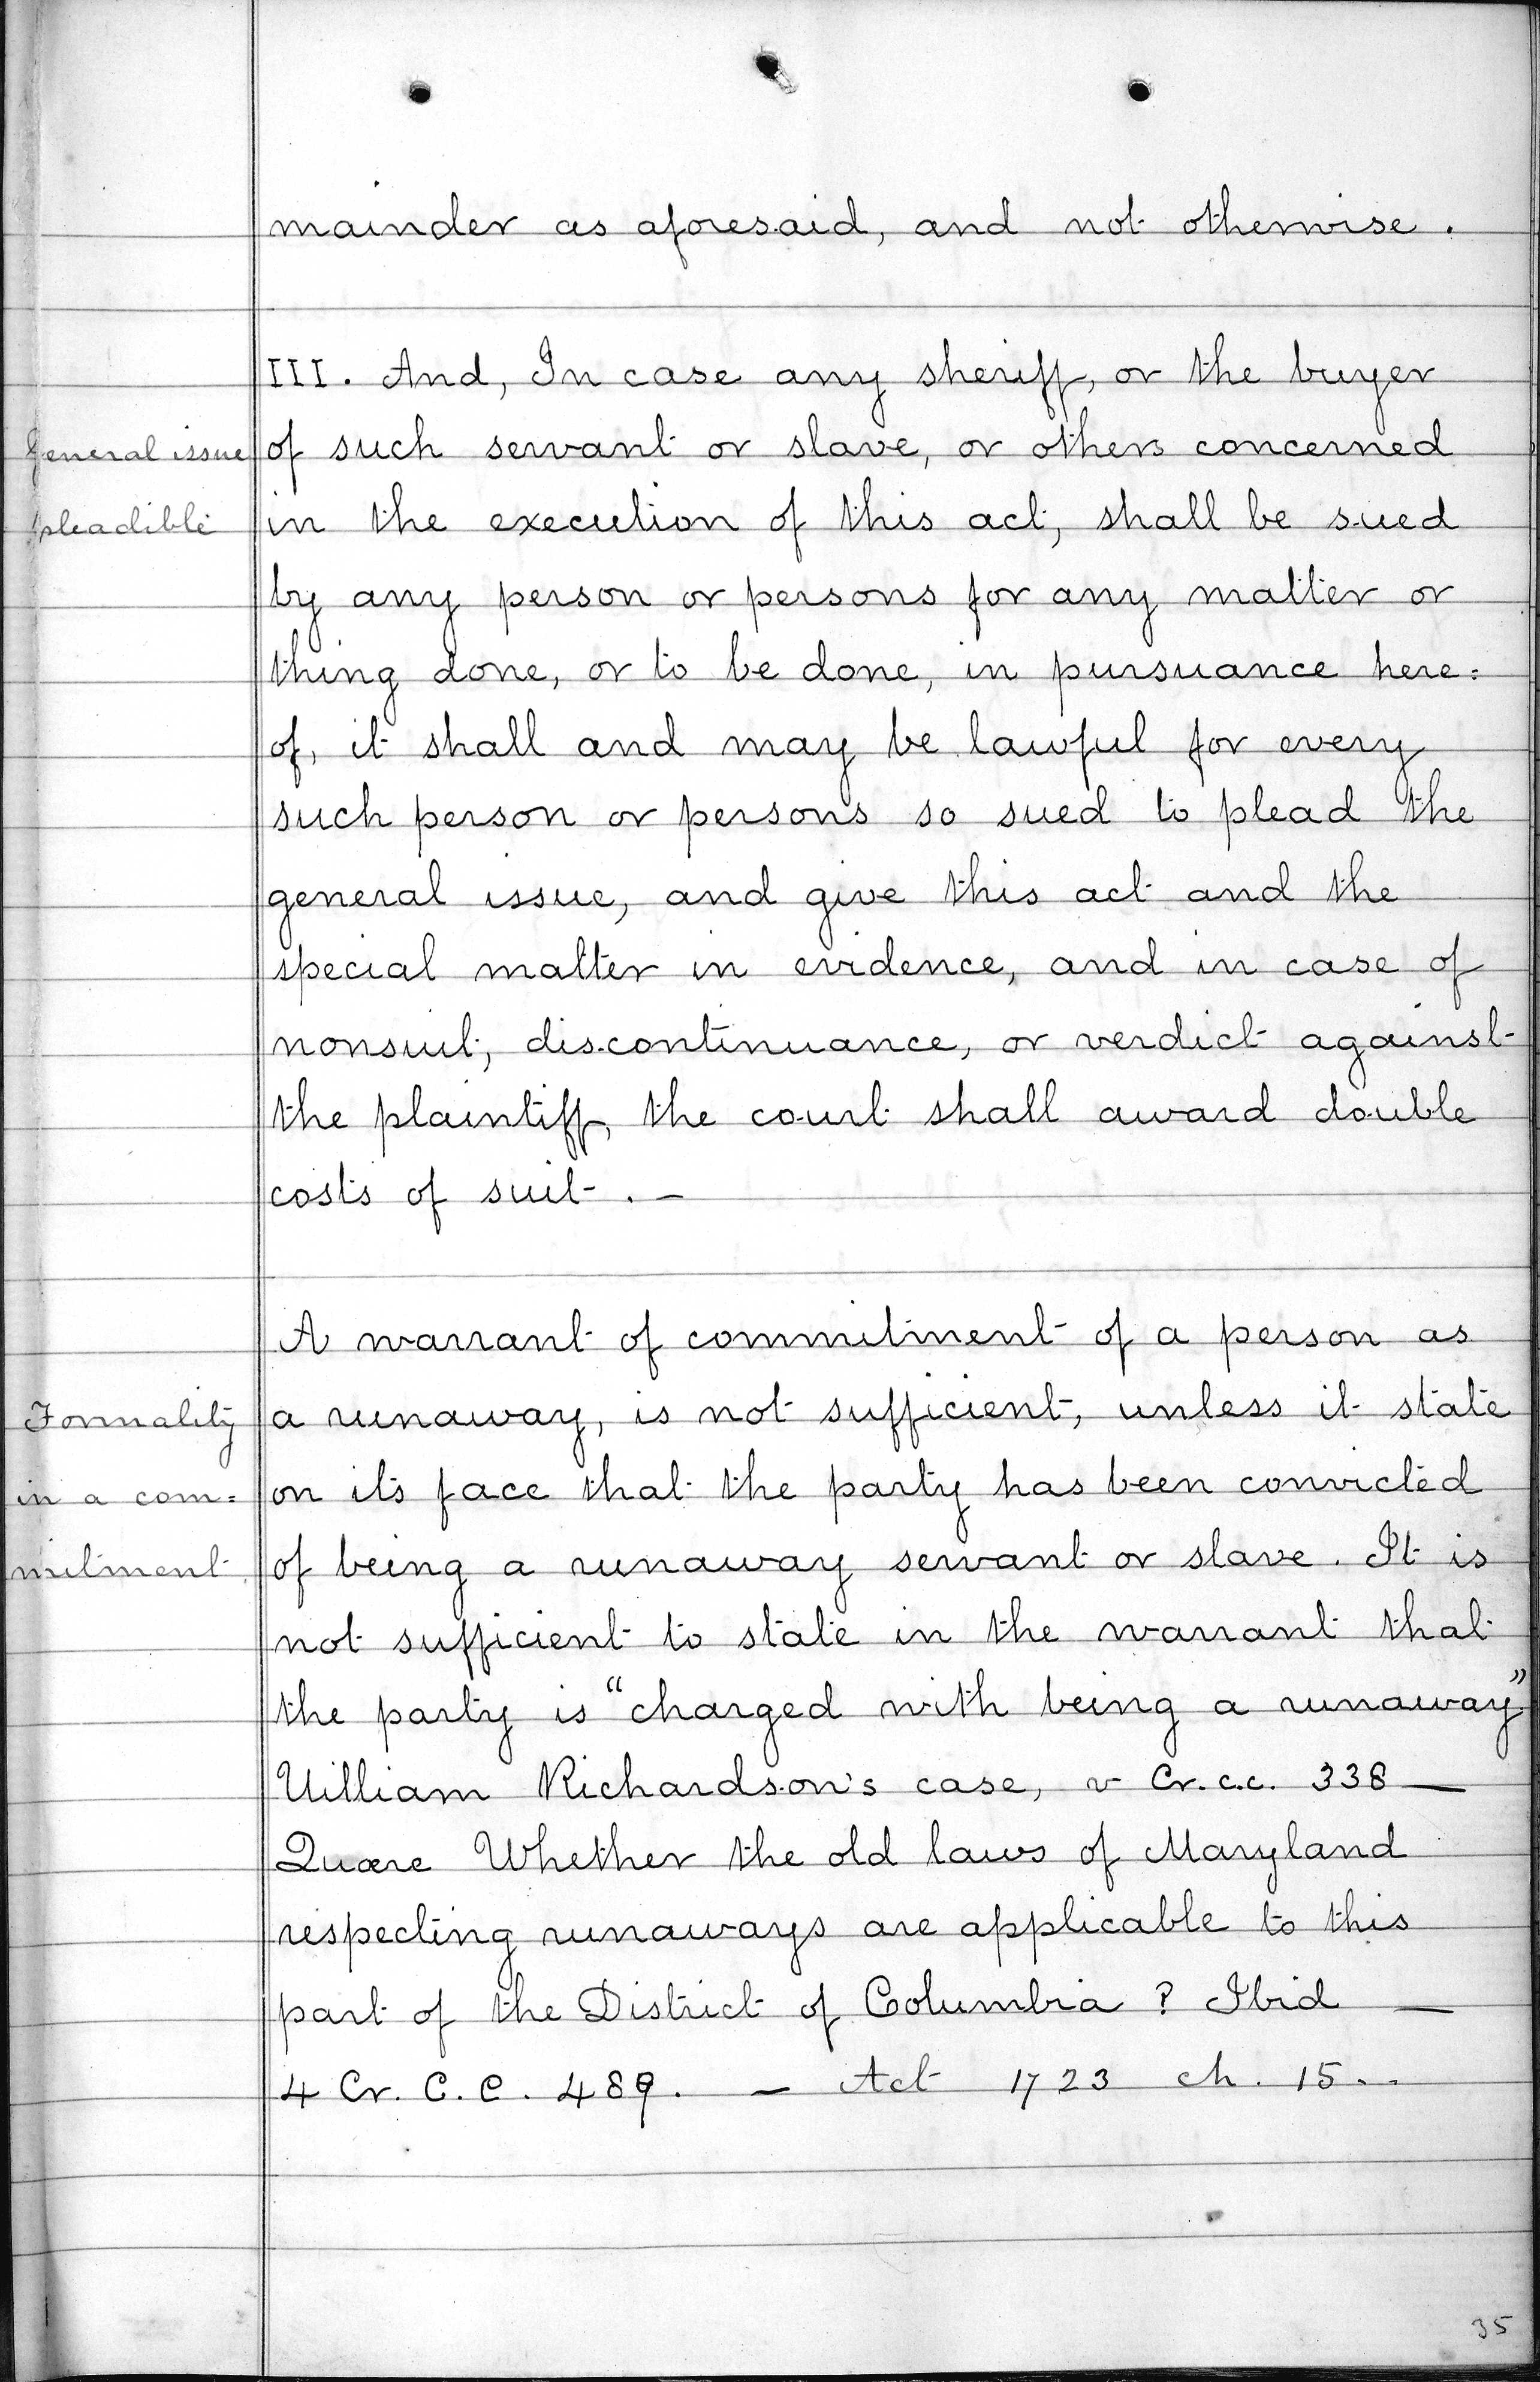 mainder as aforesaid, and not otherwise.
III. And, In case any sheriff, or the buyer
General issue
of such servant or slave, or others concerned
pleadible
in the execution of this act, shall be sued
by any person or persons for any matter or
thing done, or to be done, in pursuance here=
of, it shall and may be lawful for every
such person or persons so sued to plead the
general issue, and give this act and the
special matter in evidence, and in case of
nonsuit, discontinuance, or verdict against
the plaintiff, the court shall award double
costs of suit. —
A warrant of commitment of a person as
Formality
a runaway, is not sufficient, unless it state
in a com=
on its face that the party has been convicted
mitment.
of being a runaway servant or slave. It is
not sufficient to state in the warrant that
the party is "charged with being a runaway".
William Richardson's case, v Cr. c.c. 338 —
Quære Whether the old laws of Maryland
respecting runaways are applicable to this
part of the District of Columbia? Ibid —
4 Cr. C. C. 489. — Act 1723 ch. 15..
35